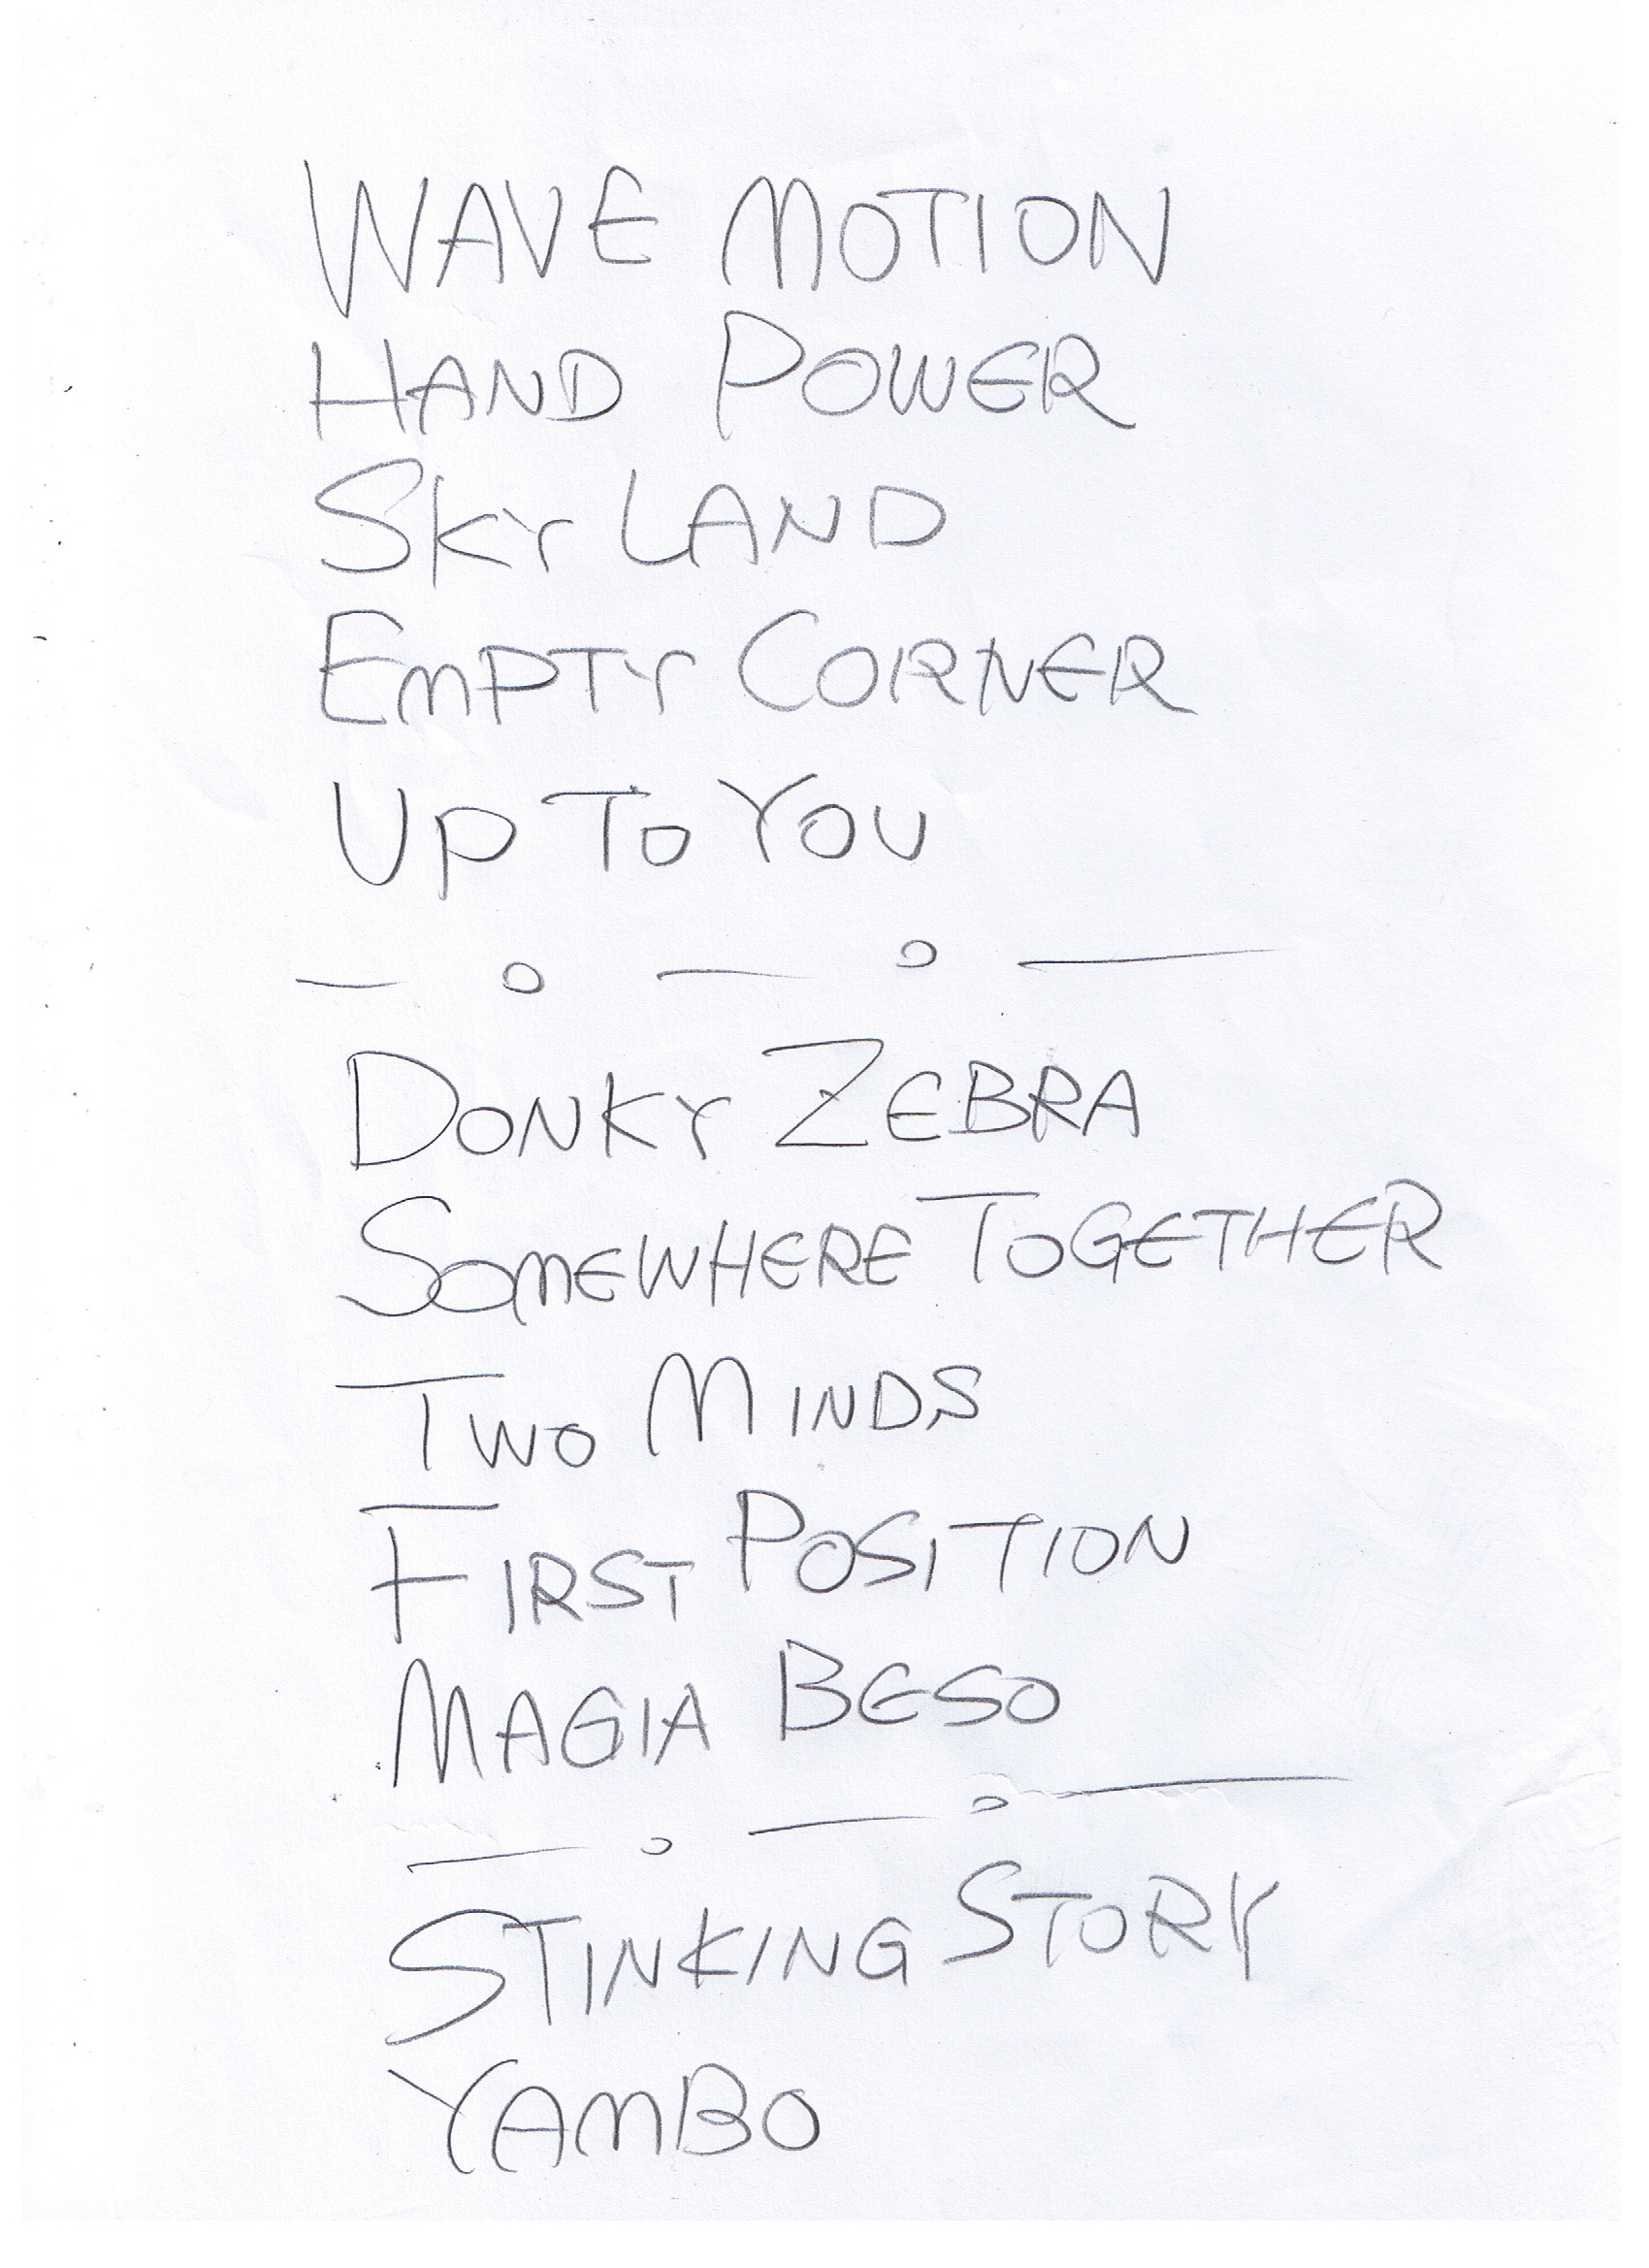 WAVE MOTION
HAND POWER
SKY LAND
EMPTY CORNER
UP TO YOU
— o — o —
DONKY ZEBRA
SOMEWHERE TOGETHER
TWO MINDS
FIRST POSITION
MAGIA BESO
— o — o —
STINKING STORY
YAMBO